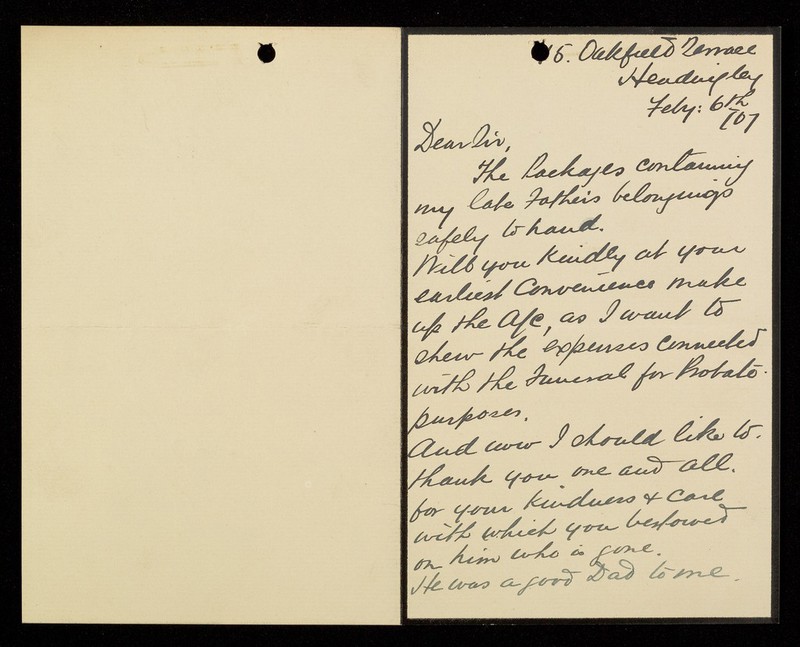 5. Oakfield Terrace
Headingley
Feby: 6th
/07
Dear Sir,
The Packages containing
my late Father's belongings
safely to hand.
Will you Kindly at your
earliest Convenience make
up the A/c, as I want to
shew the expenses connected
with the Funeral for Probate
purposes.
And now I should like to.
thank you one and all.
for your Kindness & Care
with which you bestowed
on him who is gone.
He was a good Dad to me.